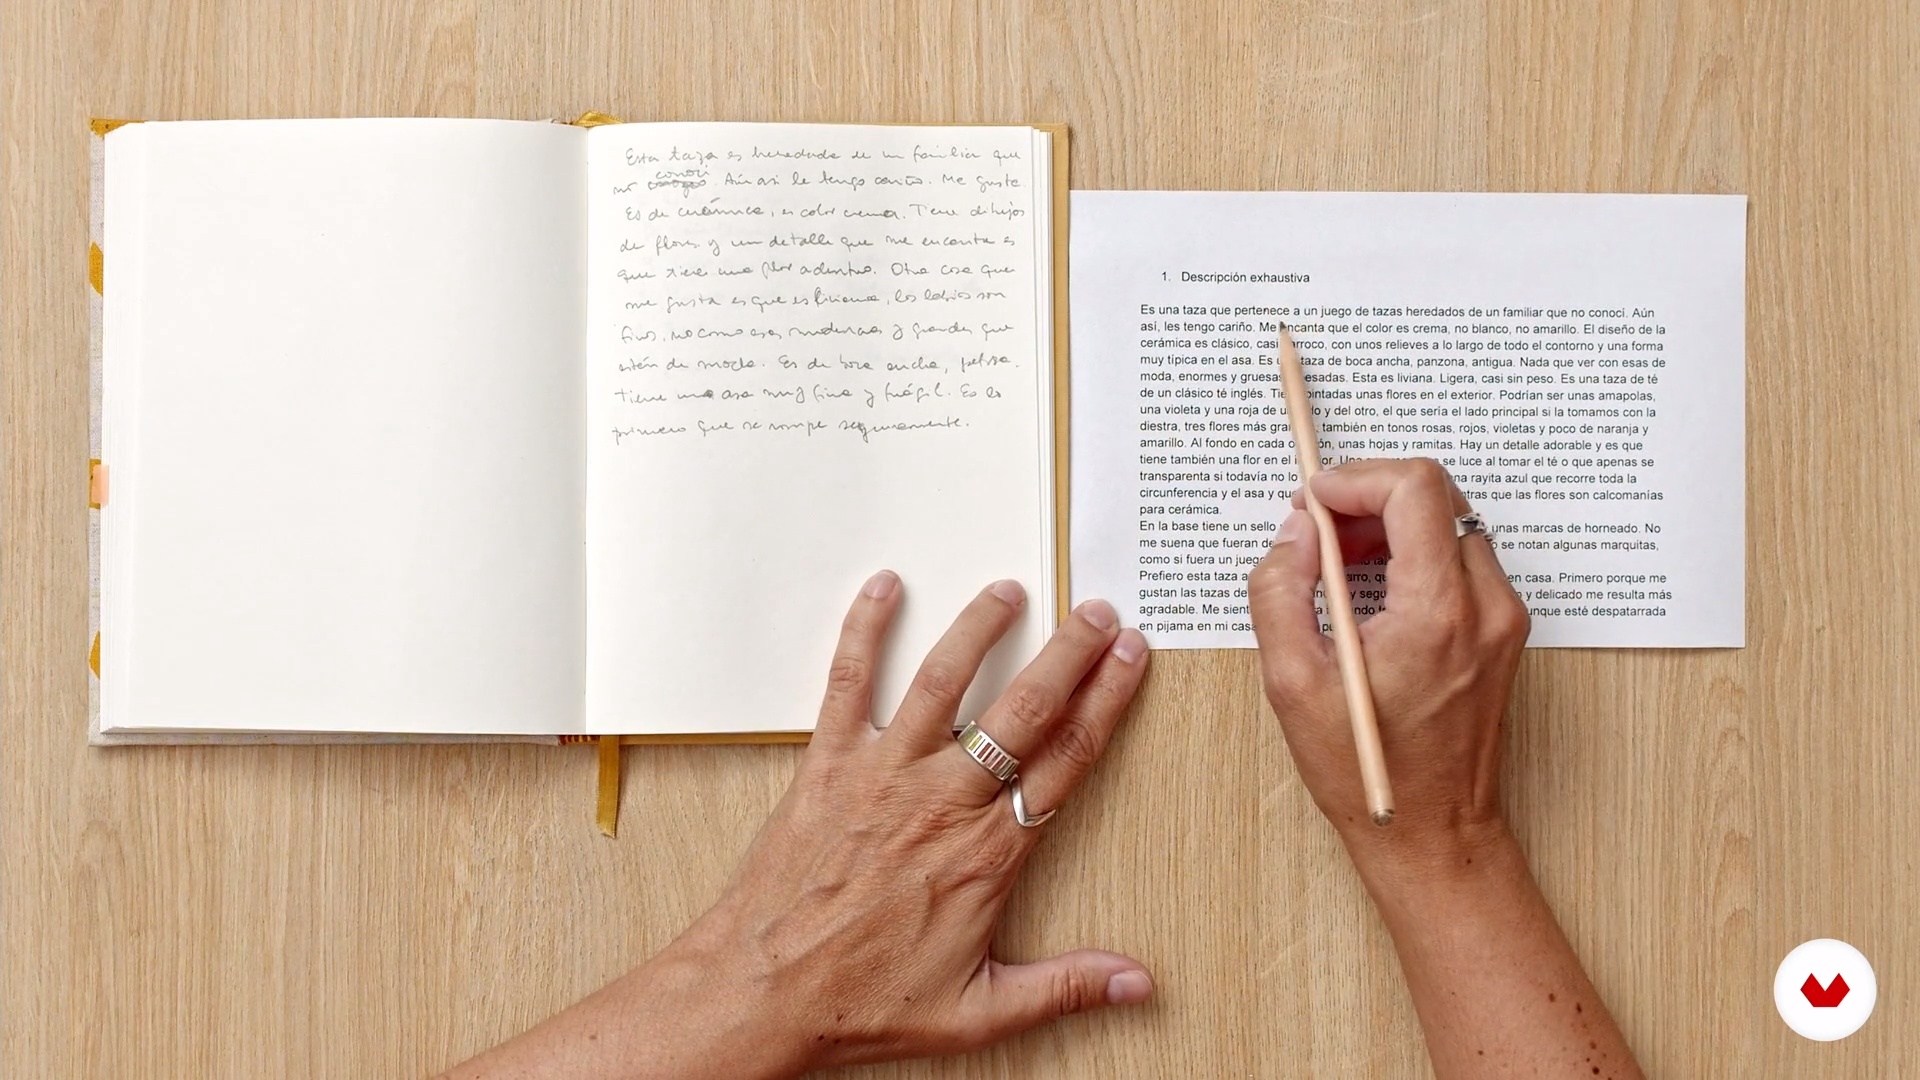 Esta taza es heredada de un familiar que
conocí
no . Aún así le tengo cariño. Me gusta.
Es de cerámica, es color crema. Tiene dibujos
de flores y un detalle que me encanta es
que tiene una flor adentro. Otra cosa que
me gusta es que es liviana, los labios son
finos, no como esas modernas y grandes que
están de moda. Es de boca ancha, petisa.
Tiene una asa muy fina y frágil. Es lo
primero que se rompe seguramente.
1. Descripción exhaustiva
Es una taza que pertenece a un juego de tazas heredados de un familiar que no conocí. Aún
así, les tengo cariño. Me encanta que el color es crema, no blanco, no amarillo. El diseño de la
cerámica es clásico, casi barroco, con unos relieves a lo largo de todo el contorno y una forma
muy típica en el asa. Es una taza de boca ancha, panzona, antigua. Nada que ver con esas de
moda, enormes y gruesas, pesadas. Esta es liviana. Ligera, casi sin peso. Es una taza de té
de un clásico té inglés. Tiene pintadas unas flores en el exterior. Podrían ser unas amapolas,
una violeta y una roja de un lado y del otro, el que sería el lado principal si la tomamos con la
diestra, tres flores más grandes, también en tonos rosas, rojos, violetas y poco de naranja y
amarillo. Al fondo en cada ón, unas hojas y ramitas. Hay un detalle adorable y es que
tiene también una flor en el interior. Una se luce al tomar el té o que apenas se
transparenta si todavía no lo una rayita azul que recorre toda la
circunferencia y el asa y que mientras que las flores son calcomanías
para cerámica.
En la base tiene un sello unas marcas de horneado. No
me suena que fueran de se notan algunas marquitas,
como si fuera un juego
Prefiero esta taza a en casa. Primero porque me
gustan las tazas de y delicado me resulta más
agradable. Me aunque esté despatarrada
en pijama en mi casa